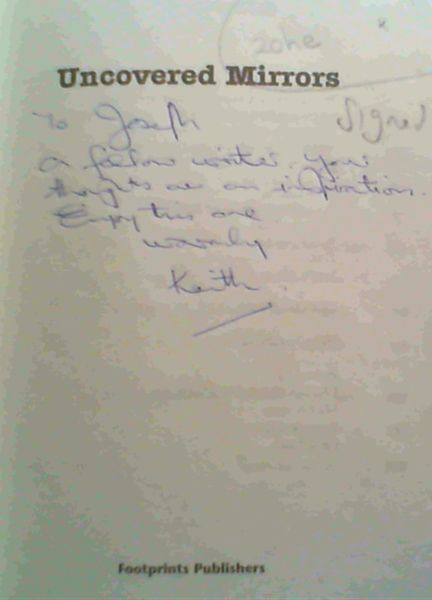 zone
Uncovered Mirrors
Signed
To Joseph
a fellow writer. Your
thoughts are an inspiration.
Enjoy this one
warmly
Keith.
Footprints Publishers